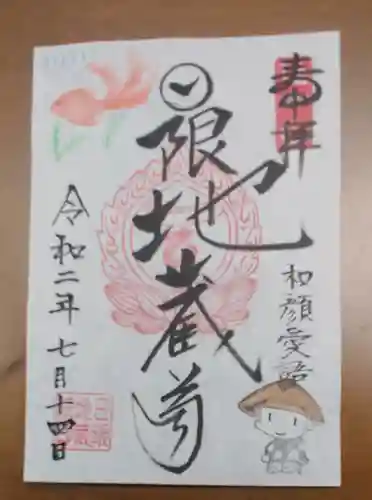 奉拝
和顔愛語
日限地蔵尊
令和二年七月十四日